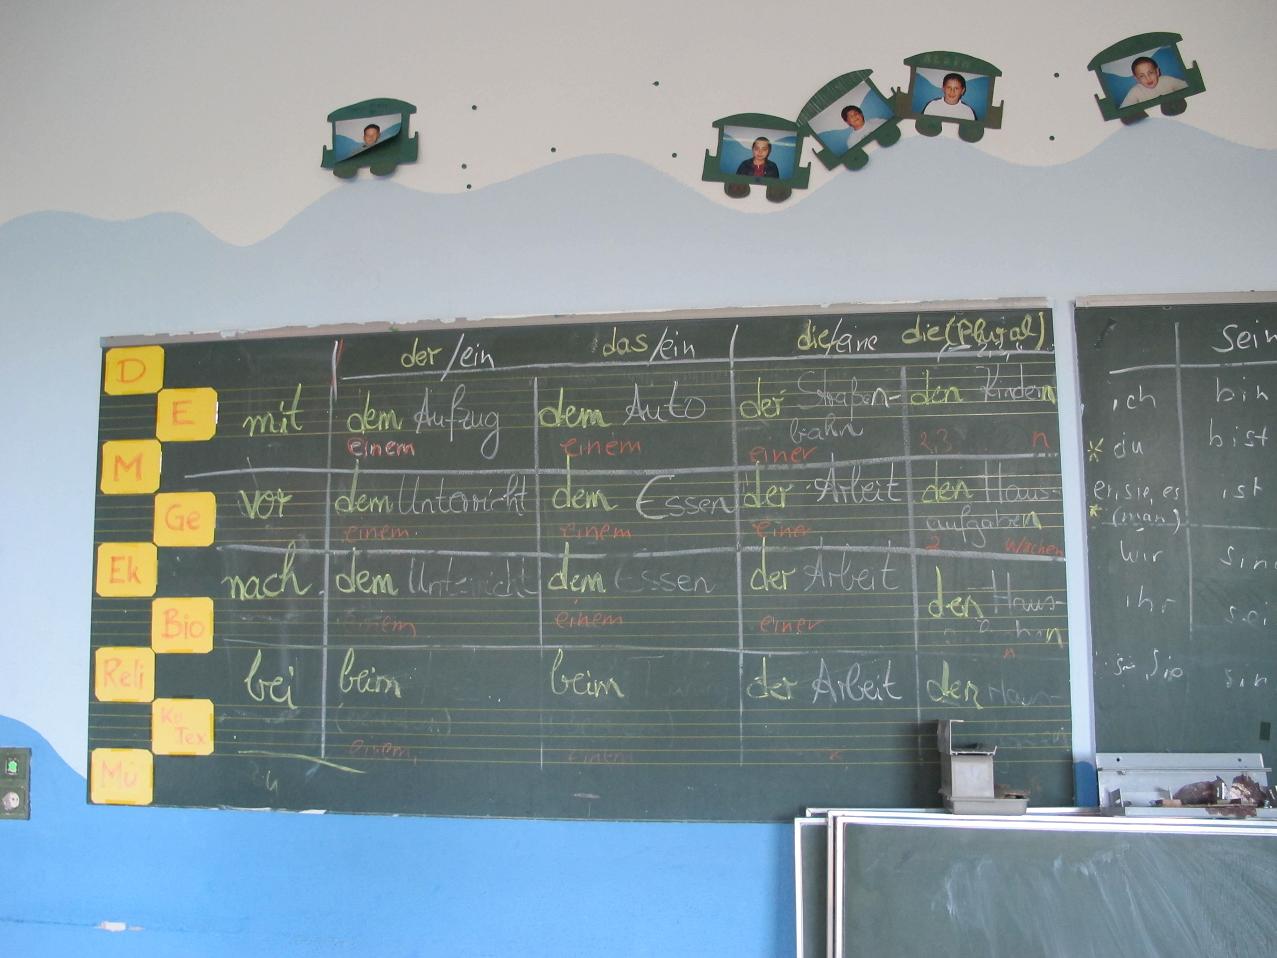 D
E
M
Ge
Ek
Bio
Reli
Ku
Tex
Mu
der/ein das/ein die/eine die (Plural)
mit dem Aufzug dem Auto der Straßen- den Kindern
bahn
einem einem einer 2,3 n
vor dem Unterricht dem Essen der Arbeit den Haus-
aufgaben
einem einem einer 2 Wochen
nach dem Unterricht dem Essen der Arbeit den Haus-
einem einem einer n
bei beim beim der Arbeit den Haus-
einem, einem
sein
ich bin
* du bist
er, sie, es ist
* (man)
wir sin
ihr sei
sie, Sie sin